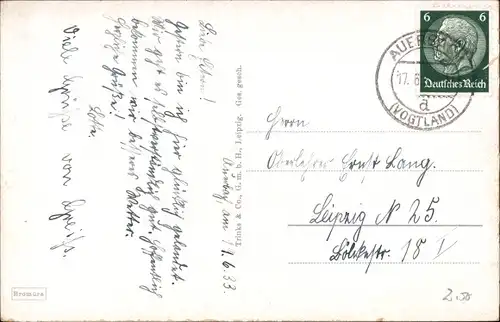 Auerbach am 17.6.33
Liebe Eltern!
Gestern bin ich hier glücklich gelandet.
Mir geht es selbstverständlich gut. Hoffentlich
bekommen wir besseres Wetter.
Herzliche Grüße!
Lotte.
Viele Grüße von
Trinks & Co., G. m. b. H., Leipzig. Ges. gesch.
Bromura
6 6
Deutsches Reich
AUERBACH
17.6
(VOGTLAND)
d
Herrn
Oberlehrer Ernst Lang.
Leipzig N 25.
18 I
2.50